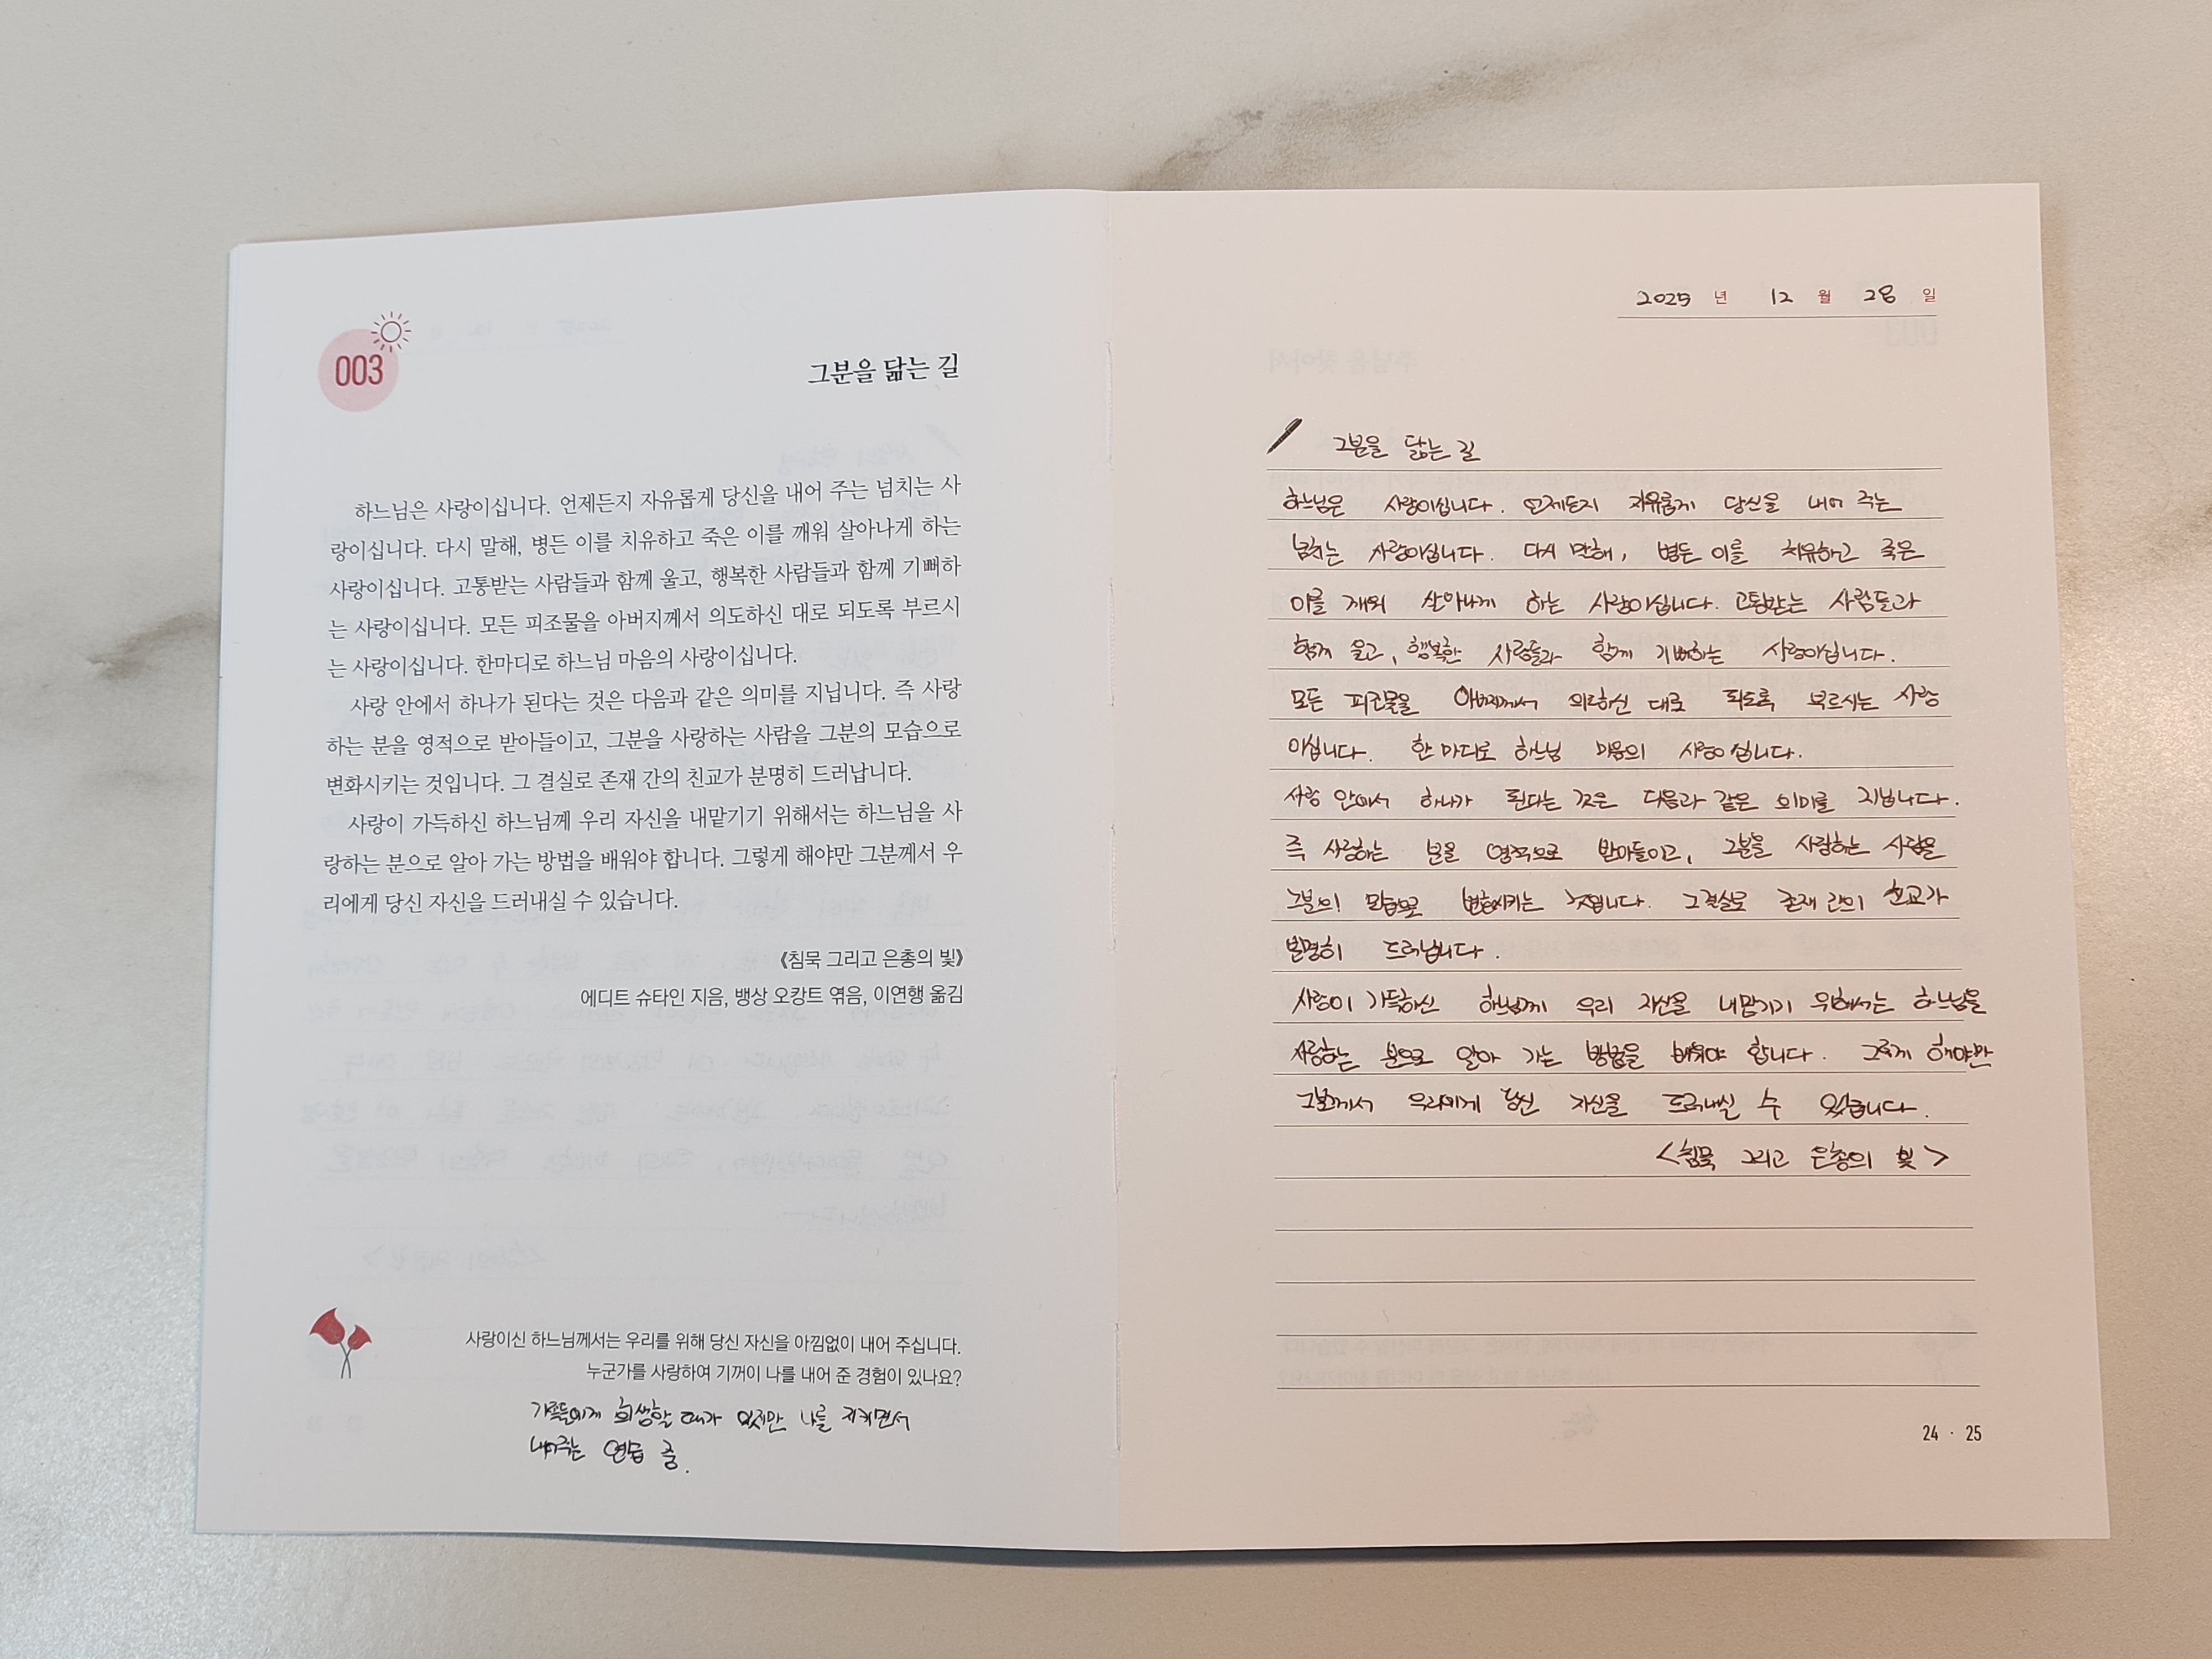 003
그분을 닮는 길
하느님은 사랑이십니다. 언제든지 자유롭게 당신을 내어 주는 넘치는 사
랑이십니다. 다시 말해, 병든 이를 치유하고 죽은 이를 깨워 살아나게 하는
사랑이십니다. 고통받는 사람들과 함께 울고, 행복한 사람들과 함께 기뻐하
는 사랑이십니다. 모든 피조물을 아버지께서 의도하신 대로 되도록 부르시
는 사랑이십니다. 한마디로 하느님 마음의 사랑이십니다.
사랑 안에서 하나가 된다는 것은 다음과 같은 의미를 지닙니다. 즉 사랑
하는 분을 영적으로 받아들이고, 그분을 사랑하는 사람을 그분의 모습으로
변화시키는 것입니다. 그 결실로 존재 간의 친교가 분명히 드러납니다.
사랑이 가득하신 하느님께 우리 자신을 내맡기기 위해서는 하느님을 사
랑하는 분으로 알아 가는 방법을 배워야 합니다. 그렇게 해야만 그분께서 우
리에게 당신 자신을 드러내실 수 있습니다.
《침묵 그리고 은총의 빛》
에디트 슈타인 지음, 뱅상 오캉트 엮음, 이연행 옮김
사랑이신 하느님께서는 우리를 위해 당신 자신을 아낌없이 내어 주십니다.
누군가를 사랑하여 기꺼이 나를 내어 준 경험이 있나요?
가족들에게 희생할 때가 있지만 나를 지키면서
내어주는 연습 중.
2025 년 12 월 28 일
그분을 닮는 길
하느님은 사랑이십니다. 언제든지 자유롭게 당신을 내어 주는
넘치는 사랑이십니다. 다시 말해, 병든 이를 치유하고 죽은
이를 깨워 살아나게 하는 사랑이십니다. 고통받는 사람들과
함께 울고, 행복한 사람들과 함께 기뻐하는 사랑이십니다.
모든 피조물을 아버지께서 의도하신 대로 되도록 부르시는 사랑
이십니다. 한 마디로 하느님 마음의 사랑이십니다.
사랑 안에서 하나가 된다는 것은 다음과 같은 의미를 지닙니다.
즉 사랑하는 분을 영적으로 받아들이고, 그분을 사랑하는 사람을
그분의 모습으로 변화시키는 것입니다. 그 결실로 존재 간의 친교가
분명히 드러납니다.
사랑이 가득하신 하느님께 우리 자신을 내맡기기 위해서는 하느님을
사랑하는 분으로 알아 가는 방법을 배워야 합니다. 그렇게 해야만
그분께서 우리에게 당신 자신을 드러내실 수 있습니다.
<침묵 그리고 은총의 빛>
24 · 25